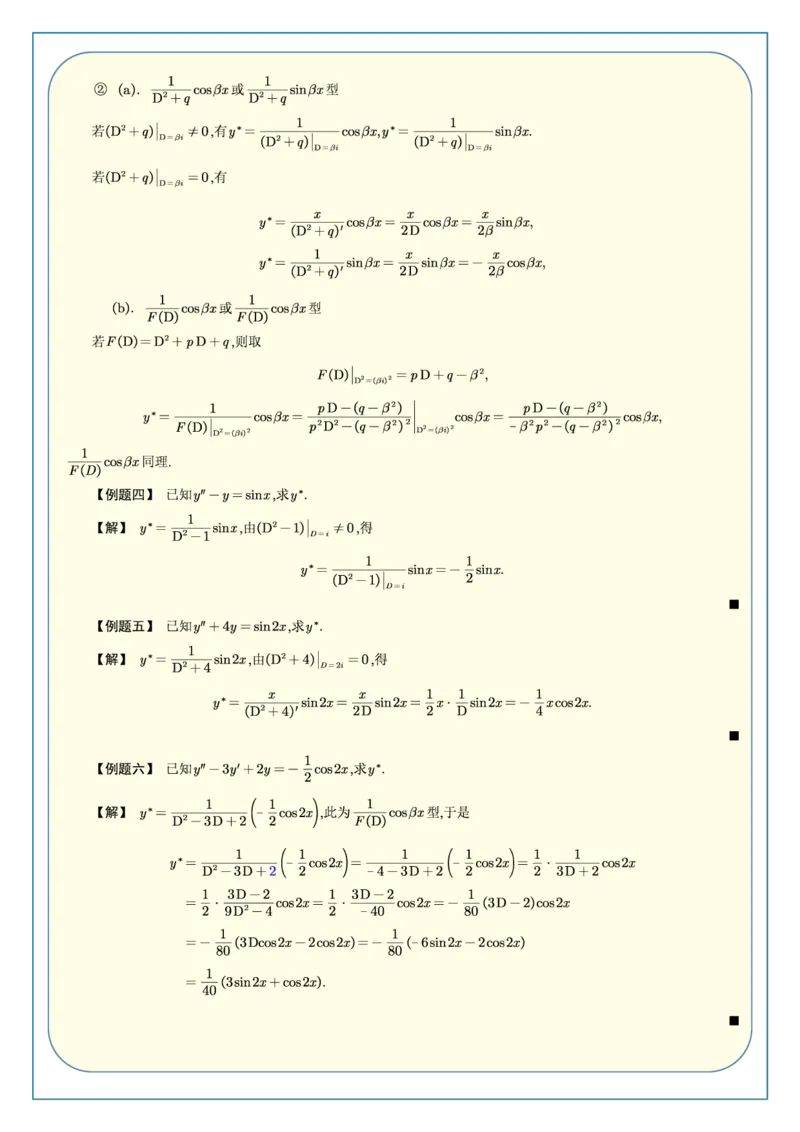 ② (a). \frac{1}{D²+q}cosβx或\frac{1}{D²+q}sinβx型
若(D²+q)|_{D=βi}≠0,有y*=\frac{1}{(D²+q)|_{D=βi}}cosβx,y*=\frac{1}{(D²+q)|_{D=βi}}sinβx.
若(D²+q)|_{D=βi}=0,有
y*=\frac{x}{(D²+q)′}cosβx=\frac{x}{2D}cosβx=\frac{x}{2β}sinβx,
y*=\frac{1}{(D²+q)′}sinβx=\frac{x}{2D}sinβx=-\frac{x}{2β}cosβx,
(b). \frac{1}{F(D)}cosβx或\frac{1}{F(D)}cosβx型
若F(D)=D²+pD+q,则取
F(D)|_{D²=(βi)²}=pD+q-β²,
y*=\frac{1}{F(D)|_{D²=(βi)²}}cosβx=\frac{pD-(q-β²)}{p²D²-(q-β²)²}|_{D²=(βi)²}cosβx=\frac{pD-(q-β²)}{-β²p²-(q-β²)²}cosβx,
\frac{1}{F(D)}cosβx同理.
【例题四】 已知y″-y=sinx,求y*.
【解】 y*=\frac{1}{D²-1}sinx,由(D²-1)|_{D=i}≠0,得
y*=\frac{1}{(D²-1)|_{D=i}}sinx=-\frac{1}{2}sinx.
■
【例题五】 已知y″+4y=sin2x,求y*.
【解】 y*=\frac{1}{D²+4}sin2x,由(D²+4)|_{D=2i}=0,得
y*=\frac{x}{(D²+4)′}sin2x=\frac{x}{2D}sin2x=\frac{1}{2}x·\frac{1}{D}sin2x=-\frac{1}{4}xcos2x.
■
【例题六】 已知y″-3y′+2y=-\frac{1}{2}cos2x,求y*.
【解】 y*=\frac{1}{D²-3D+2}(-\frac{1}{2}cos2x),此为\frac{1}{F(D)}cosβx型,于是
y*=\frac{1}{D²-3D+2}(-\frac{1}{2}cos2x)=\frac{1}{-4-3D+2}(-\frac{1}{2}cos2x)=\frac{1}{2}·\frac{1}{3D+2}cos2x
=\frac{1}{2}·\frac{3D-2}{9D²-4}cos2x=\frac{1}{2}·\frac{3D-2}{-40}cos2x=-\frac{1}{80}(3D-2)cos2x
=-\frac{1}{80}(3Dcos2x-2cos2x)=-\frac{1}{80}(-6sin2x-2cos2x)
=\frac{1}{40}(3sin2x+cos2x).
■